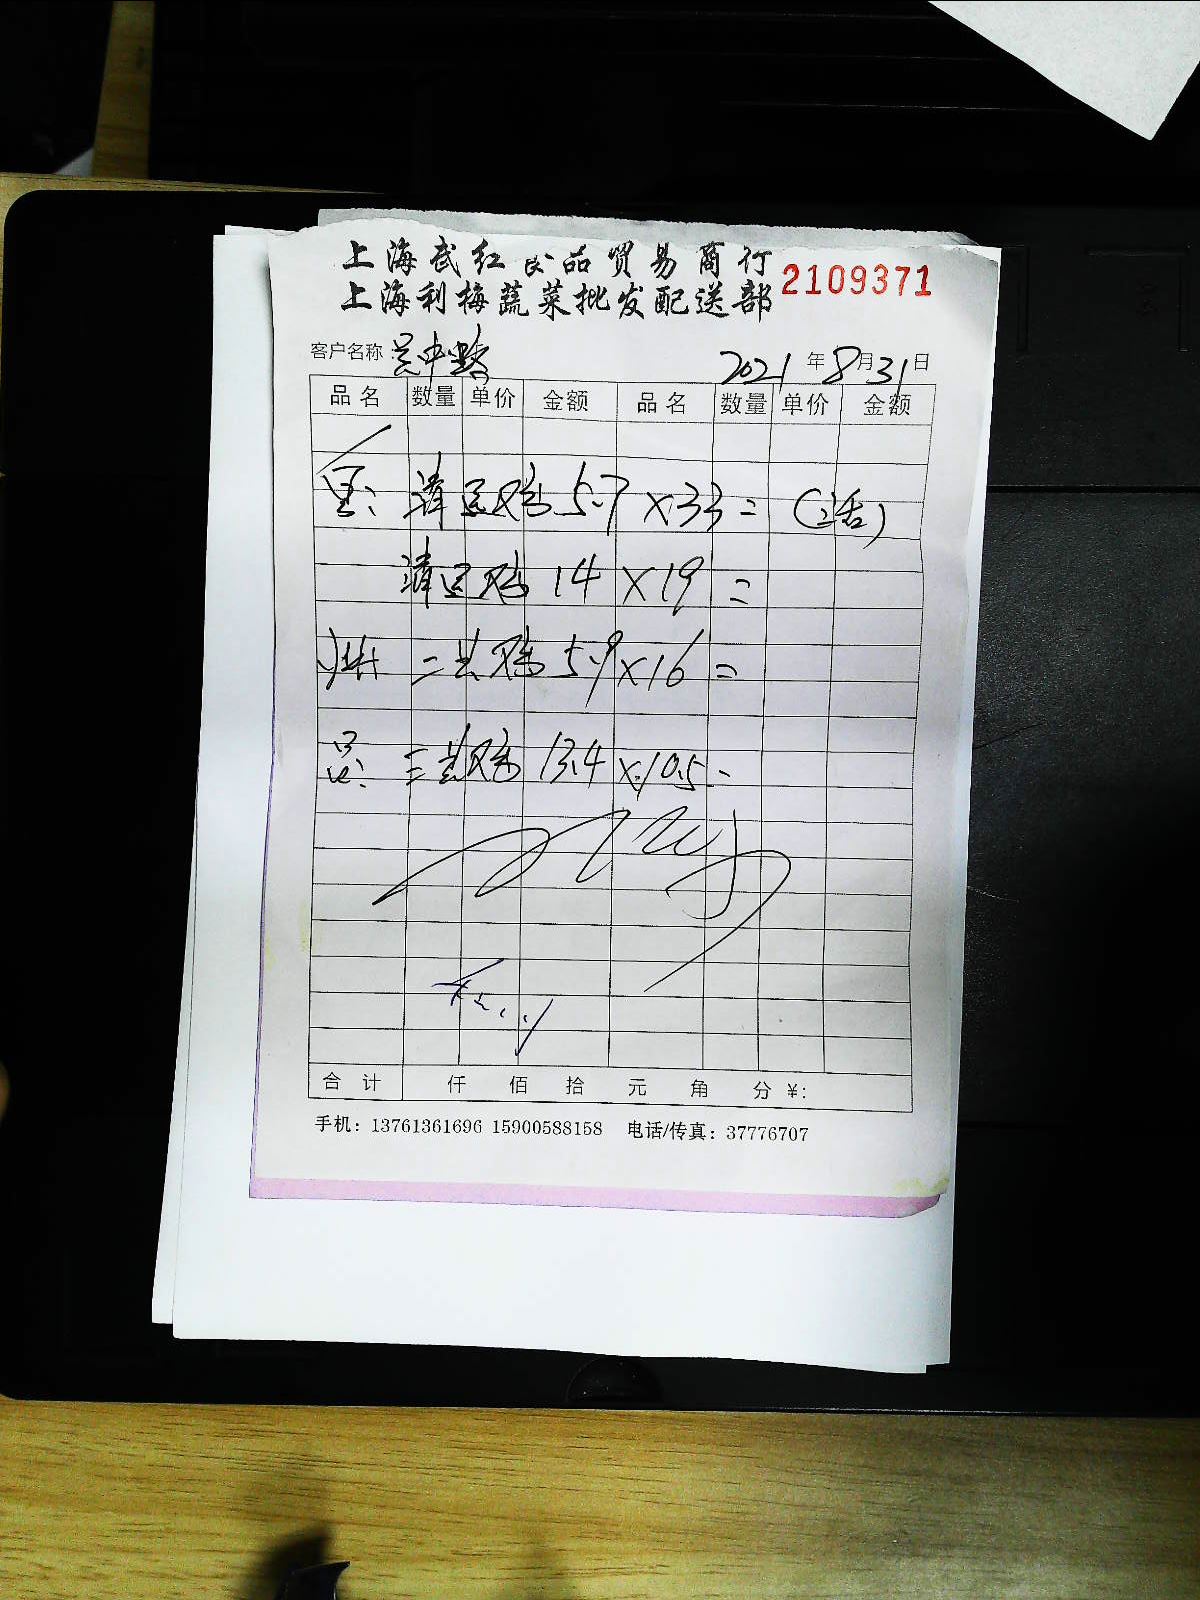 上海武红食品贸易商行
2109371
上海利梅蔬菜批发配送部
客户名称 吴中路 2021 年 8 月 31 日
品名 数量 单价 金额 品名 数量 单价 金额
清远鸡 5.7 × 33 = (活)
清远鸡 14 × 19 =
二黄鸡 5.9 × 16 =
三黄鸡 13.4 × 10.5 =
合计 仟 佰 拾 元 角 分 ¥:
手机：13761361696 15900588158 电话/传真：37776707